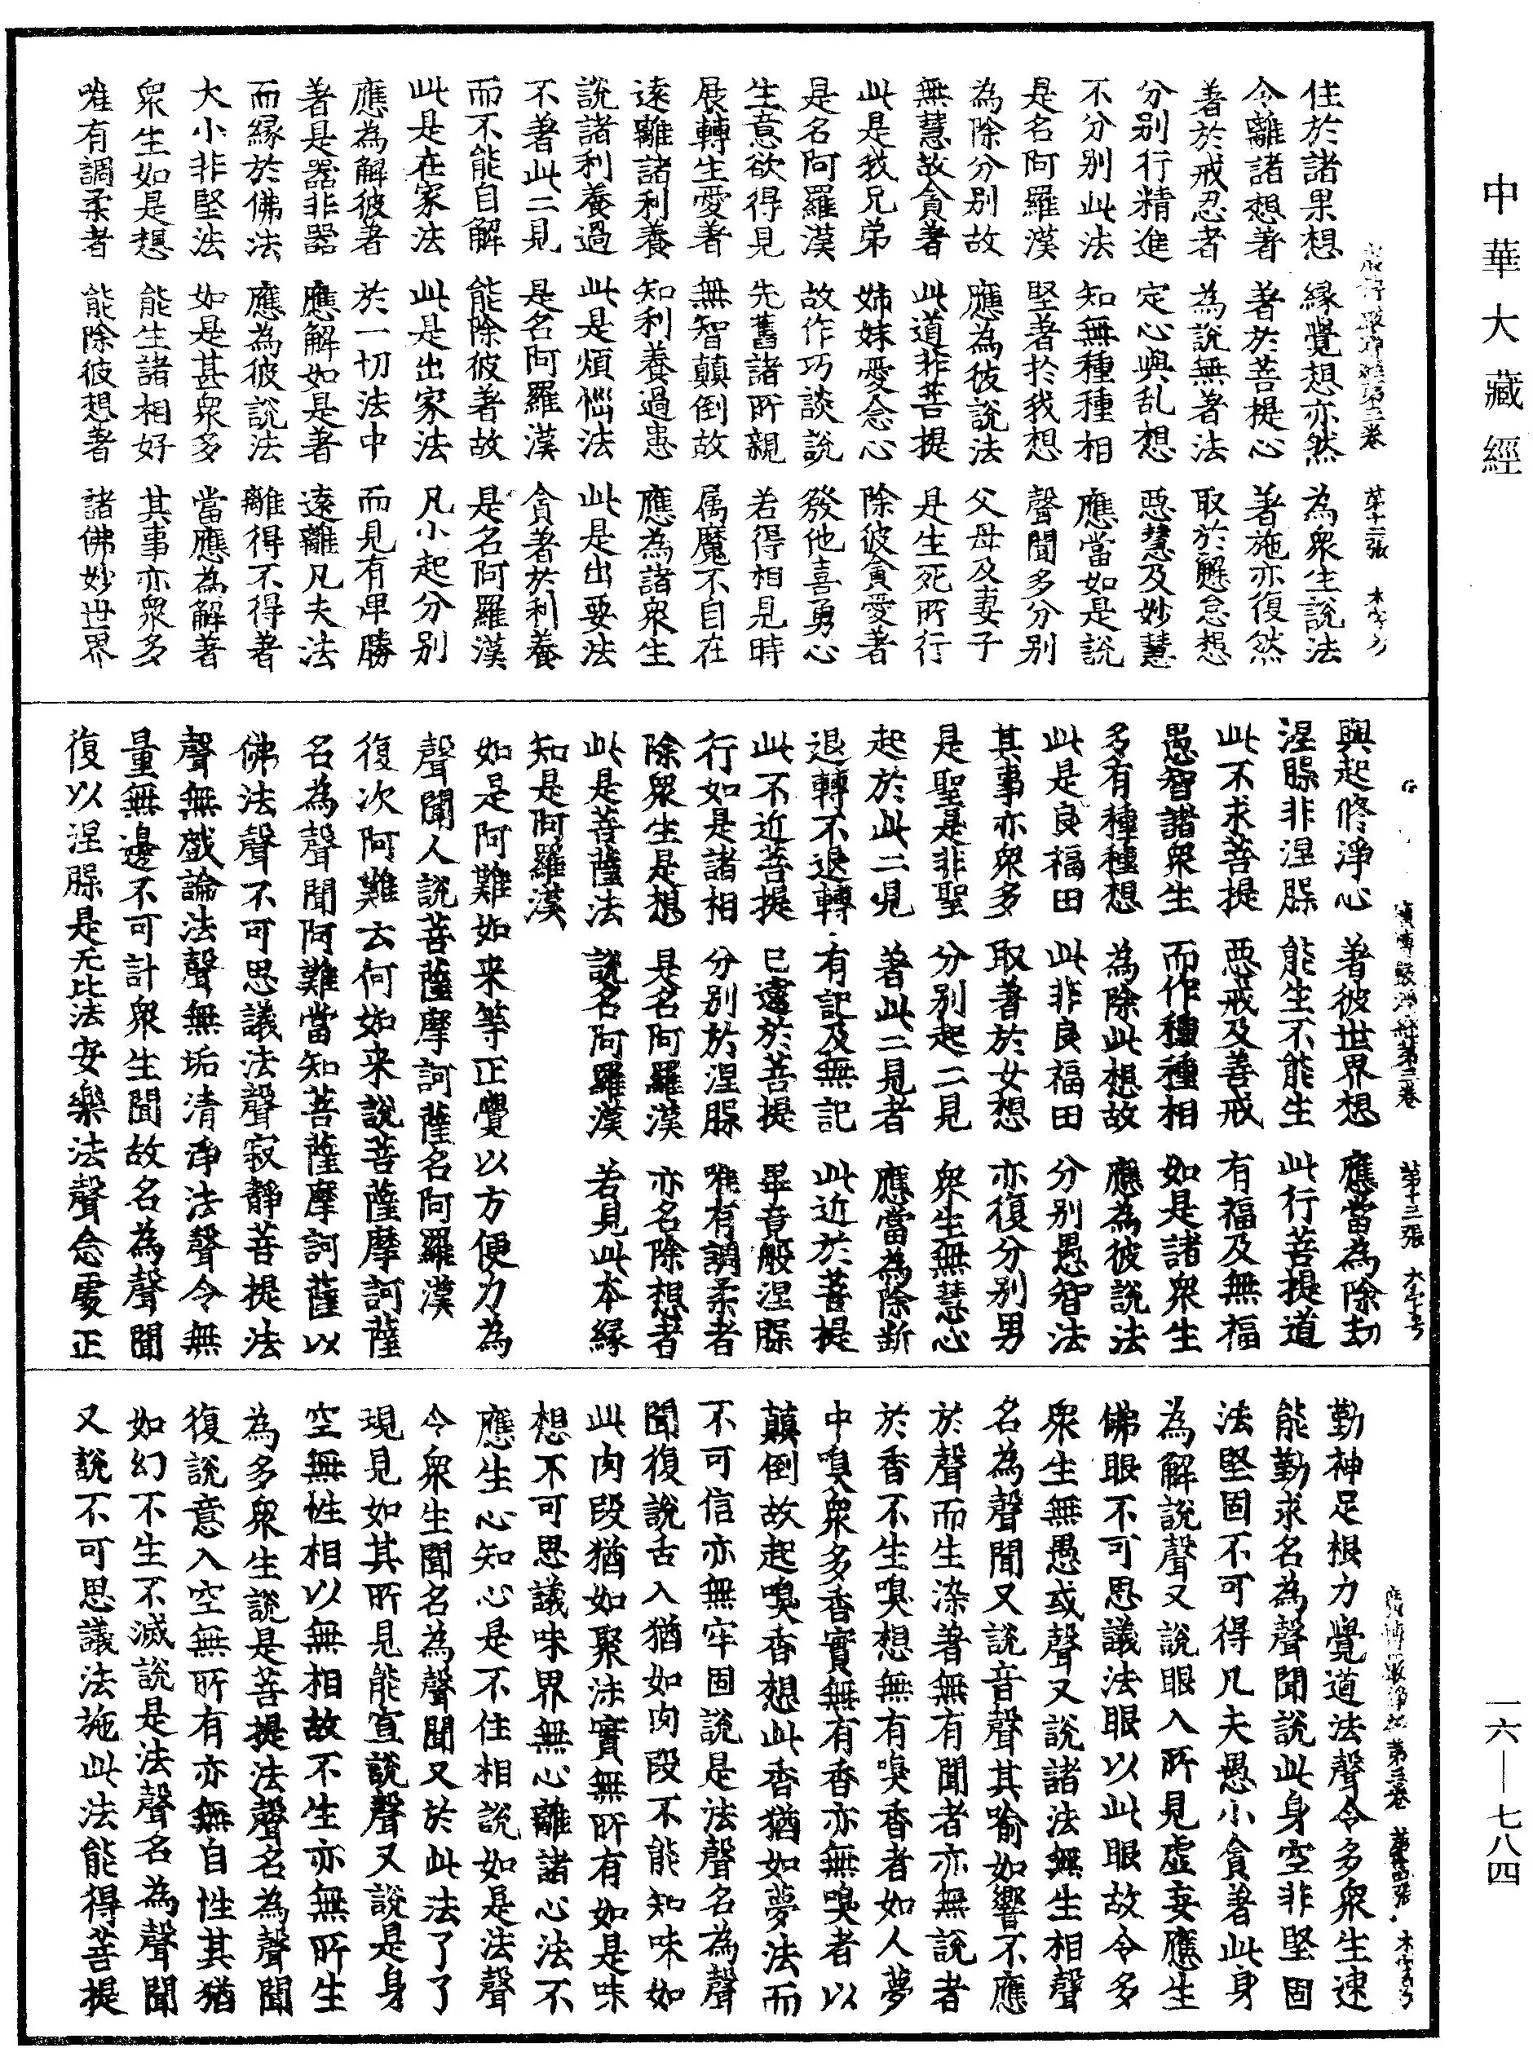 中華大藏經
一六—七八四
住於諸果想　緣覺想亦然　為眾生說法
令離諸想著　著於菩提心　著施亦復然
著於戒忍者　為說無著法　取於懈怠想
分別行精進　定心與乱想　惡慧及妙慧
不分別此法　知無種種相　應當如是說
是名阿羅漢　堅著於我想　聲聞多分別
為除分別故　應為彼說法　父母及妻子
無慧故貪著　此道非菩提　是生死所行
此是我兄弟　姊妹愛念心　除彼貪愛著
是名阿羅漢　故作巧談說　發他喜勇心
生意欲得見　先舊諸所親　若得相見時
展轉生愛著　無智顛倒故　属魔不自在
遠離諸利養　知利養過患　應為諸眾生
說諸利養過　此是煩惱法　此是出要法
不著此二見　是名阿羅漢　貪著於利養
而不能自解　能除彼著故　是名阿羅漢
此是在家法　此是出家法　凡小起分別
應為解彼著　於一切法中　而見有卑勝
著是器非器　應解如是著　遠離凡夫法
而緣於佛法　應為彼說法　離得不得著
大小非堅法　如是甚眾多　當應為解著
眾生如是想　能生諸相好　其事亦眾多
唯有調柔者　能除彼想著　諸佛妙世界
興起修淨心　著彼世界想　應當為除劫
涅槃非涅槃　能生不能生　此行菩提道
此不求菩提　惡戒及善戒　有福及無福
愚智諸眾生　而作種種相　如是諸眾生
多有種種想　為除此想故　應為彼說法
此是良福田　此非良福田　分別愚智法
其事亦眾多　取著於女想　亦復分別男
是聖是非聖　分別起二見　眾生無慧心
起於此二見　著此二見者　應當為除斷
退轉不退轉　有記及無記　此近於菩提
此不近菩提　已遠於菩提　畢竟般涅槃
行如是諸相　分別於涅槃　唯有調柔者
除眾生是想　是名阿羅漢　亦名除想者
此是菩薩法　說名阿羅漢　若見此本緣
知是阿羅漢
如是阿難如来等正覺以方便力為
聲聞人說菩薩摩訶薩名阿羅漢
復次阿難云何如来說菩薩摩訶薩
名為聲聞阿難當知菩薩摩訶薩以
佛法聲不可思議法聲寂靜菩提法
聲無戲論法聲無垢清淨法聲令無
量無邊不可計眾生聞故名為聲聞
復以涅槃是无比法安樂法聲念處正
勤神足根力覺道法聲令多眾生速
能勤求名為聲聞說此身空非堅固
法堅固不可得凡夫愚小貪著此身
為解說聲又說眼入所見虛妄應生
佛眼不可思議法眼以此眼故令多
眾生無愚或聲又說諸法無生相聲
名為聲聞又說音聲其喻如響不應
於聲而生染著無有聞者亦無說者
於香不生嗅想無有嗅香者如人夢
中嗅眾多香實無有香亦無嗅者以
顛倒故起嗅香想此香猶如夢法而
不可信亦無牢固說是法聲名為聲
聞復說舌入猶如肉段不能知味如
此肉段猶如聚沫實無所有如是味
想不可思議味界無心離諸心法不
應生心知心是不住相說如是法聲
令眾生聞名為聲聞又於此法了了
現見如其所見能宣說聲又說是身
空無性相以無相故不生亦無所生
為多眾生說是菩提法聲名為聲聞
復說意入空無所有亦無自性其猶
如幻不生不滅說是法聲名為聲聞
又說不可思議法施此法能得菩提